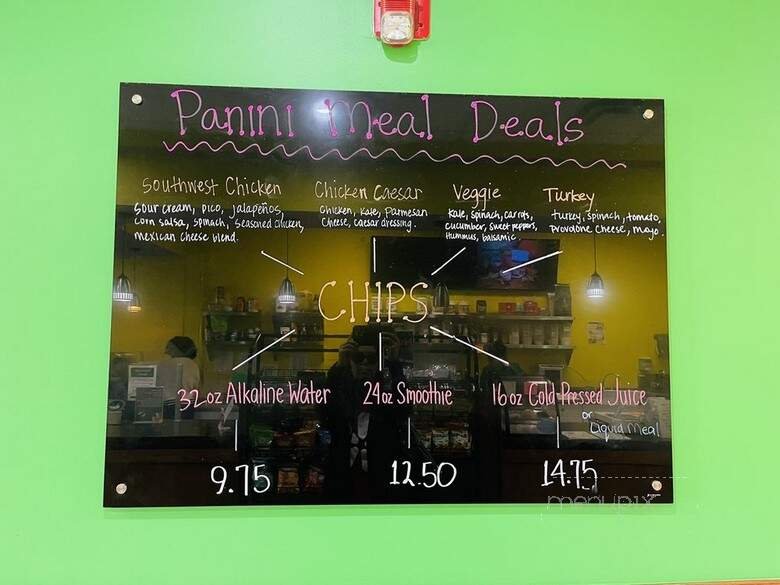 Panini Meal Deals
Southwest Chicken
Sour cream, pico, jalapeños,
corn salsa, spinach, seasoned chicken,
mexican cheese blend.
Chicken Caesar
Chicken, Kale, Parmesan
Cheese, caesar dressing.
Veggie
Kale, spinach, carrots,
cucumber, sweet peppers,
Hummus, balsamic.
Turkey
turkey, spinach, tomato,
Provolone cheese, mayo.
CHIPS
32oz Alkaline Water
24oz Smoothie
16oz Cold Pressed Juice
or
Liquid Meal
9.75
12.50
14.75
menupix